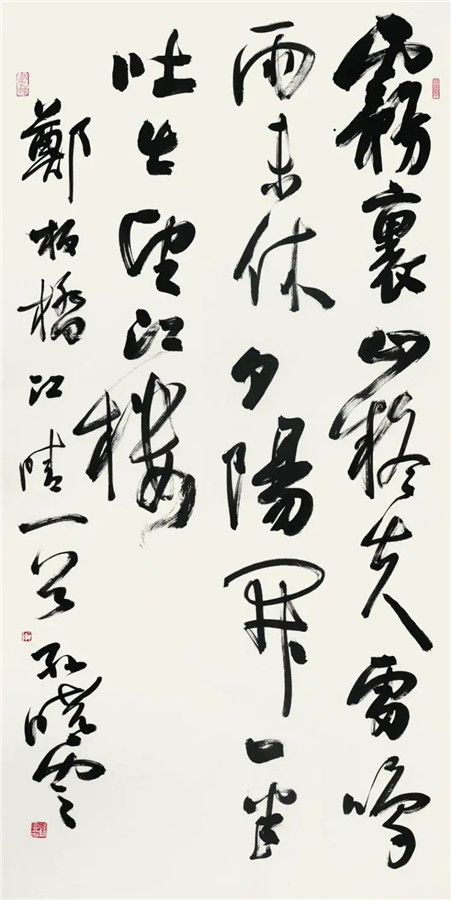 霧裹山疑失雷鳴
雨未休夕陽開一半
吐出望江樓
鄭板橋江晴一首孫曉雲